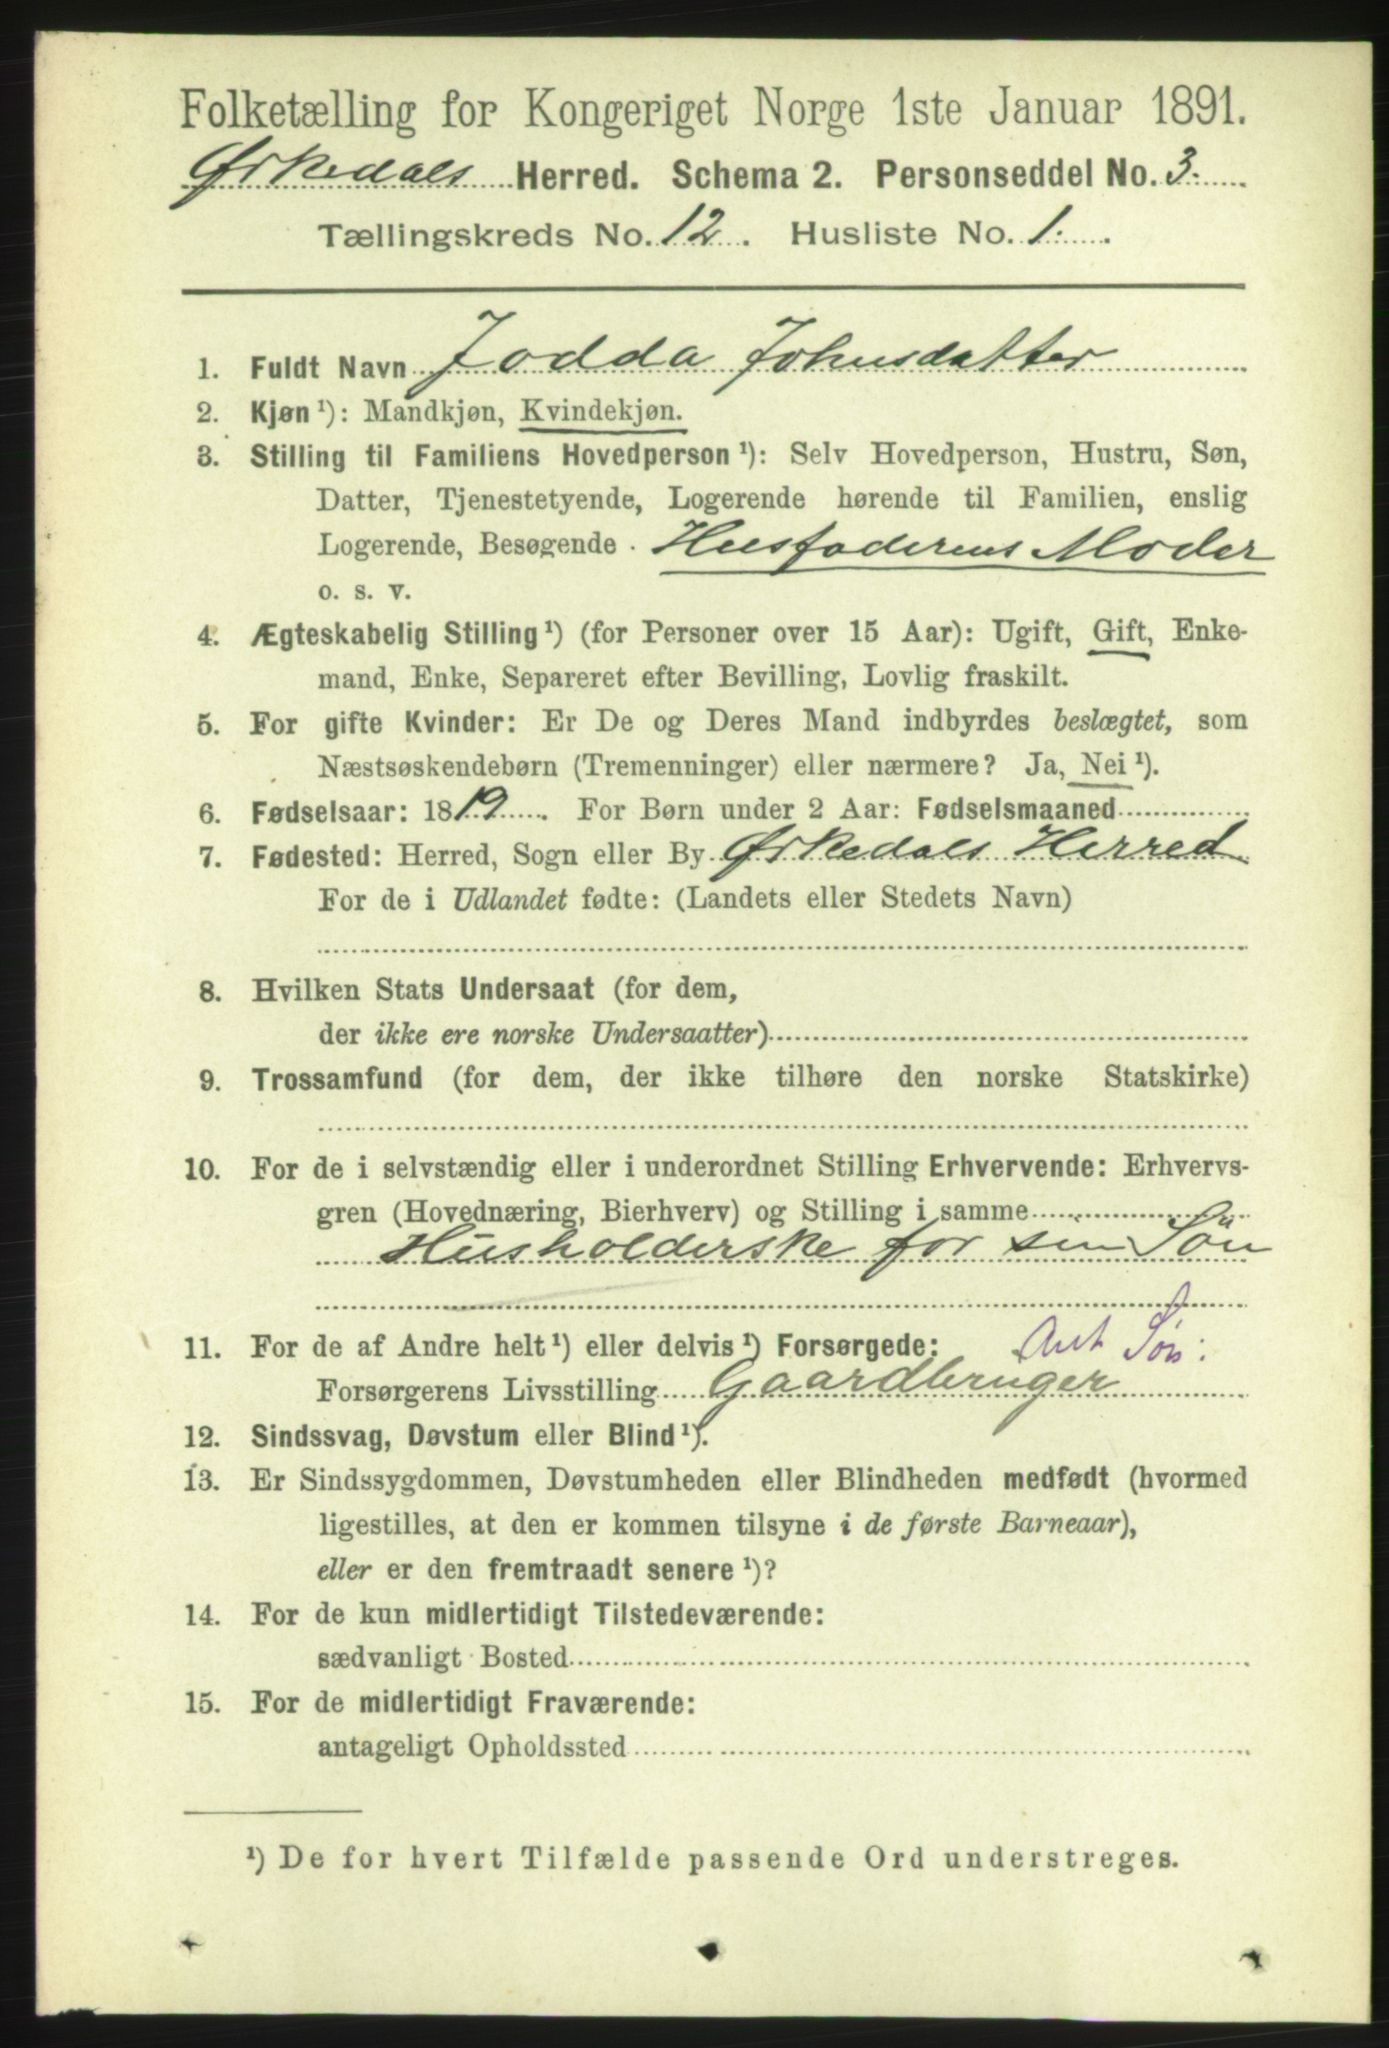 Folketælling for Kongeriget Norge 1ste Januar 1891.
Ørkedals Herred. Schema 2. Personseddel No. 3.
Tællingskreds No. 12. Husliste No. 1.
1. Fuldt Navn Jodda Johnsdatter
2. Kjøn ¹): Mandkjøn, Kvindekjøn.
3. Stilling til Familiens Hovedperson ¹): Selv Hovedperson, Hustru, Søn,
Datter, Tjenestetyende, Logerende hørende til Familien, enslig
Logerende, Besøgende . Husfaderens Moder
o. s. v.
4. Ægteskabelig Stilling ¹) (for Personer over 15 Aar): Ugift, Gift, Enke-
mand, Enke, Separeret efter Bevilling, Lovlig fraskilt.
5. For gifte Kvinder: Er De og Deres Mand indbyrdes beslægtet, som
Næstsøskendebørn (Tremenninger) eller nærmere? Ja, Nei ¹).
6. Fødselsaar: 1819. For Børn under 2 Aar: Fødselsmaaned
7. Fødested: Herred, Sogn eller By Ørkedals Herred
For de i Udlandet fødte: (Landets eller Stedets Navn)
8. Hvilken Stats Undersaat (for dem,
der ikke ere norske Undersaatter)
9. Trossamfund (for dem, der ikke tilhøre den norske Statskirke)
10. For de i selvstændig eller i underordnet Stilling Erhvervende: Erhvervs-
gren (Hovednæring, Bierhverv) og Stilling i samme
Husholderske for sin Sön
11. For de af Andre helt ¹) eller delvis ¹) Forsørgede: Søn:
Forsørgerens Livsstilling Gaardbruger
12. Sindssvag, Døvstum eller Blind ¹).
13. Er Sindssygdommen, Døvstumheden eller Blindheden medfødt (hvormed
ligestilles, at den er kommen tilsyne i de første Barneaar),
eller er den fremtraadt senere ¹)?
14. For de kun midlertidigt Tilstedeværende:
sædvanligt Bosted
15. For de midlertidigt Fraværende:
antageligt Opholdssted
¹) De for hvert Tilfælde passende Ord understreges.